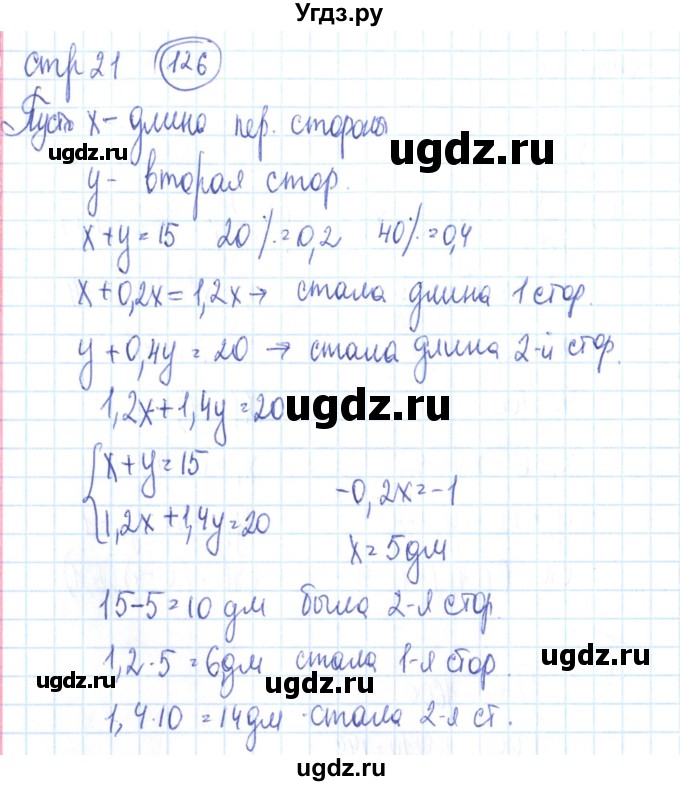 Угдз.ру
стр 21 126
Пусть x - длина пер. стороны
ugdz.ru ugdz.ru
y - вторая стор.
x + y = 15 20% = 0,2 40% = 0,4
x + 0,2x = 1,2x → стала длина 1 стор.
y + 0,4y = 20 → стала длина 2-й стор.
1,2x + 1,4y = 20
ugdz.ru
x + y = 15
-0,2x = -1
1,2x + 1,4y = 20
x = 5 дм
15 - 5 = 10 дм была 2-я стор.
ugdz.ru
1,2 · 5 = 6 дм стала 1-я стор.
ugdz.ru ugdz.ru
1,4 · 10 = 14 дм стала 2-я ст.
ugdz.ru